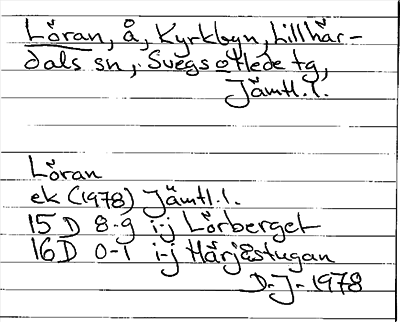 Löran, å, Kyrkbyn, Lillhär-
dals sn, Svegs o Hede tg,
Jämtl. l.
Löran
ek (1978) Jämtl. l.
15 D 8-9 i-j Lörberget
16 D 0-1 i-j Härjåstugan
D-J- 1978